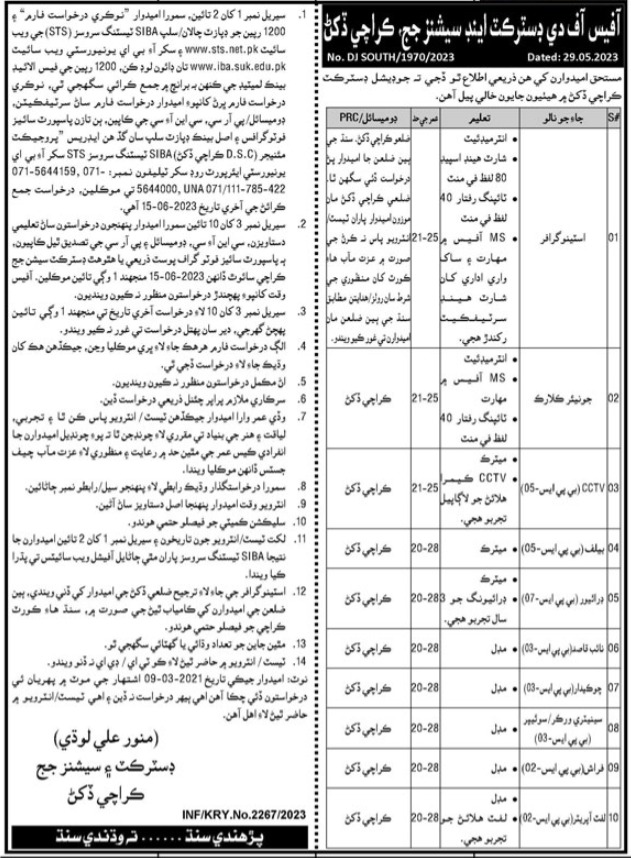 آفيس آف دي ڊسٽرڪٽ اينڊ سيشنز جج، ڪراچي ڏکڻ
No. DJ SOUTH/1970/2023 Dated: 29.05.2023
مستحق اميدوارن کي هن ذريعي اطلاع ٿو ڏجي تہ جوڊيشل ڊسٽرڪٽ
ڪراچي ڏکڻ ۾ هيٺيون جايون خالي پيل آهن.
S# جاءِ جو نالو تعليم عمر جي حد ڊوميسائل/PRC
01 اسٽينوگرافر
• انٽرميڊئيٽ
• شارٽ هينڊ اسپيڊ
80 لفظ في منٽ
• ٽائپنگ رفتار 40
لفظ في منٽ
• MS آفيس ۾
مهارت ۽ ساک
واري اداري کان
شارٽ هينڊ
سرٽيفڪيٽ
رکندڙ هجي.
21-25
ضلعو ڪراچي ڏکڻ. سنڌ جي
ٻين ضلعن جا اميدوار پڻ
درخواست ڏئي سگهن ٿا.
ضلعي ڪراچي ڏکڻ مان
موزون اميدوار پاران ٽيسٽ/
انٽرويو پاس نہ ڪرڻ جي
صورت ۾ عزت مآب هاءِ
ڪورٽ کان منظوري جي
شرط سان رولز/هدايتن مطابق
سنڌ جي ٻين ضلعن مان
اميدوارن تي غور ڪيو ويندو.
02 جونيئر ڪلارڪ
• انٽرميڊئيٽ
• MS آفيس ۾
مهارت
• ٽائپنگ رفتار 40
لفظ في منٽ
21-25 ڪراچي ڏکڻ
03 CCTV (بي پي ايس-05)
• ميٽرڪ
• CCTV ڪيمرا
هلائڻ جو لاڳاپيل
تجربو هجي.
21-25 ڪراچي ڏکڻ
04 بيلف (بي پي ايس-05) • ميٽرڪ 20-28 ڪراچي ڏکڻ
05 ڊرائيور (بي پي ايس-07)
• ميٽرڪ
• ڊرائيونگ جو 3
سال تجربو هجي.
20-28 ڪراچي ڏکڻ
06 نائب قاصد (بي پي ايس-03) • مڊل 20-28 ڪراچي ڏکڻ
07 چوڪيدار (بي پي ايس-03) • مڊل 20-28 ڪراچي ڏکڻ
08 سينيٽري ورڪر/سوئيپر
(بي پي ايس-03) • مڊل 20-28 ڪراچي ڏکڻ
09 فراش (بي پي ايس-02) • مڊل 20-28 ڪراچي ڏکڻ
10 لفٽ آپريٽر (بي پي ايس-02)
• مڊل
• لفٽ هلائڻ جو
تجربو هجي.
20-28 ڪراچي ڏکڻ
1. سيريل نمبر 1 کان 2 تائين، سمورا اميدوار ”نوڪري درخواست فارم“ ۽
1200 رپين جو ڊپازٽ چالان/سلپ SIBA ٽيسٽنگ سروسز (STS) جي ويب
سائيٽ www.sts.net.pk ۽ سکر آءِ بي اي يونيورسٽي ويب سائيٽ
www.iba.suk.edu.pk تان ڊائون لوڊ ڪن، 1200 رپين جي فيس الائيڊ
بينڪ لميٽيڊ جي ڪنهن بہ برانچ ۾ جمع ڪرائي سگهجي ٿي، نوڪري
درخواست فارم ڀرڻ کانپوءِ اميدوار درخواست فارم ساڻ سرٽيفڪيٽن،
ڊوميسائل/پي آر سي، سي اين آءِ سي جي ڪاپين، ٻن تازن پاسپورٽ سائيز
فوٽوگرافس ۽ اصل بينڪ ڊپازٽ سلپ سان گڏ هن ايڊريس ”پروجيڪٽ
مئنيجر (D.S.C ڪراچي ڏکڻ) SIBA ٽيسٽنگ سروسز STS سکر آءِ بي اي
يونيورسٽي ايئرپورٽ روڊ سکر ٽيليفون نمبر: 071-5644159، 071-
5644000، UNA 071/111-785-422 تي موڪلين، درخواست جمع
ڪرائڻ جي آخري تاريخ 15-06-2023 آهي.
2. سيريل نمبر 3 کان 10 تائين سمورا اميدوار پنهنجون درخواستون ساڻ تعليمي
دستاويزن، سي اين آءِ سي، ڊوميسائل ۽ پي آر سي جي تصديق ٿيل ڪاپيون،
ٻہ پاسپورٽ سائيز فوٽو گراف پوسٽ ذريعي يا هٿوهٿ ڊسٽرڪٽ سيشن جج
ڪراچي سائوٿ ڏانهن 15-06-2023 منجهند 1 وڳي تائين موڪلين. آفيس
وقت کانپوءِ پهچندڙ درخواستون منظور نہ ڪيون وينديون.
3. سيريل نمبر 3 کان 10 لاءِ درخواست آخري تاريخ تي منجهند 1 وڳي تائين
پهچڻ گهرجي، دير سان پهتل درخواست تي غور نہ ڪيو ويندو.
4. الڳ درخواست فارم هر هڪ جاءِ لاءِ ڀري موڪليا وڃن، جيڪڏهن هڪ کان
وڌيڪ جاءِ لاءِ درخواست ڏجي ٿي.
5. اڻ مڪمل درخواستون منظور نہ ڪيون وينديون.
6. سرڪاري ملازم پراپر چئنل ذريعي درخواست ڏين.
7. وڏي عمر وارا اميدوار جيڪڏهن ٽيسٽ/ انٽرويو پاس ڪن ٿا ۽ تجربي،
لياقت ۽ هنر جي بنياد تي مقرري لاءِ چونڊجن ٿا تہ پوءِ چونڊيل اميدوارن جا
انفرادي ڪيس عمر جي مٿين حد ۾ رعايت ۽ منظوري لاءِ عزت مآب چيف
جسٽس ڏانهن موڪليا ويندا.
8. سمورا درخواستگذار وڌيڪ رابطي لاءِ پنهنجو سيل/رابطو نمبر ڄاڻائين.
9. انٽرويو وقت اميدوار پنهنجا اصل دستاويز ساڻ آڻين.
10. سليڪشن ڪميٽي جو فيصلو حتمي هوندو.
11. لکت ٽيسٽ/انٽرويو جون تاريخون ۽ سيريل نمبر 1 کان 2 تائين اميدوارن جا
نتيجا SIBA ٽيسٽنگ سروسز پاران مٿي ڄاڻايل آفيشل ويب سائيٽس تي پڌرا
ڪيا ويندا.
12. اسٽينوگرافر جي جاءِ لاءِ ترجيح ضلعي ڏکڻ جي اميدوار کي ڏني ويندي، ٻين
ضلعن جي اميدوارن کي ڪامياب ٿيڻ جي صورت ۾، سنڌ هاءِ ڪورٽ
ڪراچي جو فيصلو حتمي هوندو.
13. مٿين جاين جو تعداد وڌائي يا گهٽائي سگهجي ٿو.
14. ٽيسٽ / انٽرويو ۾ حاضر ٿيڻ لاءِ ڪو ٽي اي/ ڊي اي نہ ڏنو ويندو.
نوٽ: اميدوار جيڪي تاريخ 09-03-2021 اشتهار جي موٽ ۾ پهريان ئي
درخواستون ڏئي چڪا آهن اهي ٻيهر درخواست نہ ڏين ۽ اهي ٽيسٽ/انٽرويو ۾
حاضر ٿيڻ لاءِ اهل آهن.
(منور علي لوڌي)
ڊسٽرڪٽ ۽ سيشنز جج
ڪراچي ڏکڻ
INF/KRY.No.2267/2023
پڙهندي سنڌ ...... تہ وڌندي سنڌ